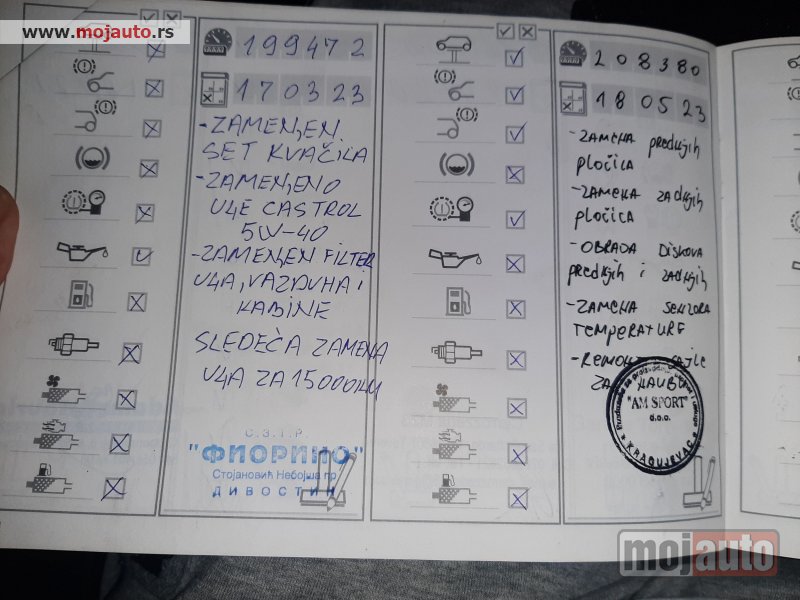 www.mojauto.rs
199472
170323
-ZAMENJEN
SET KVAČILA
-ZAMENJENO
ULJE CASTROL
5W-40
-ZAMENJEN FILTER
ULJA, VAZDUHA I
KABINE
SLEDEĆA ZAMENA
ULJA ZA 15000KM
С.З.Т.Р.
"ФИОРИНО"
Стојановић Небојша пр
ДИВОСТИН
208380
180523
- ZAMENA prednjih
pločica
- ZAMENA zadnjih
pločica
- OBRADA DISKOVA
prednjih i zadnjih
- ZAMENA SENZORA
TEMPERATURE
- REMONT SAJLE
ZA HAUBU
"AM SPORT"
d.o.o.
KRAGUJEVAC
mojauto